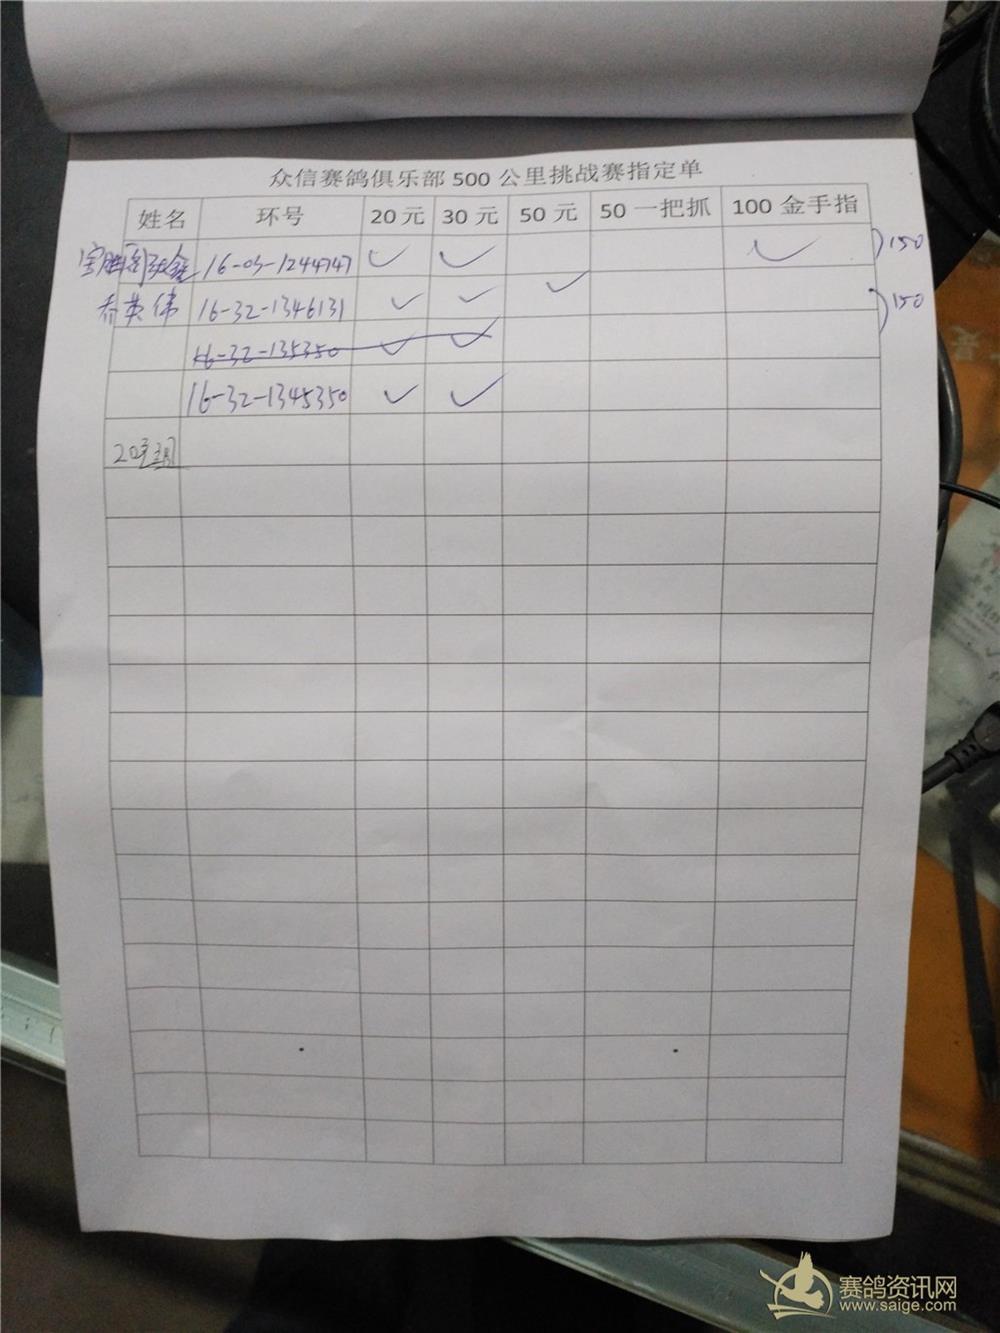 众信赛鸽俱乐部 500 公里挑战赛指定单
姓名 环号 20 元 30 元 50 元 50 一把抓 100 金手指
16-03-1244747 ✓ ✓ ✓ 150
乔英伟 16-32-1346131 ✓ ✓ ✓ 150
16-32-135350 ✓ ✓
16-32-1345350 ✓ ✓
赛鸽资讯网
www.saige.com